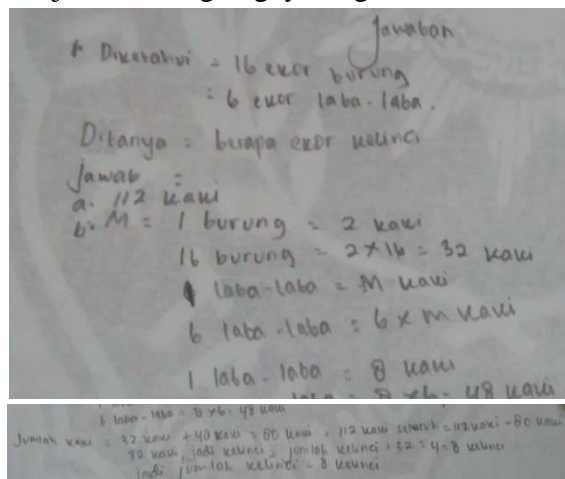 Jawaban
* Diketahui = 16 ekor burung
= 6 ekor laba-laba.
Ditanya = berapa ekor kelinci
Jawab :
a. 112 kaki
b. M = 1 burung = 2 kaki
16 burung = 2 x 16 = 32 kaki
1 laba-laba = M kaki
6 laba-laba = 6 x m kaki
1 laba-laba = 8 kaki
6 laba-laba = 8 x 6 = 48 kaki
Jumlah kaki = 32 kaki + 48 kaki = 80 kaki = 112 kaki seluruh = 112 kaki - 80 kaki
32 kaki, jadi kelinci = jumlah kelinci = 32 : 4 = 8 kelinci
jadi jumlah kelinci = 8 kelinci